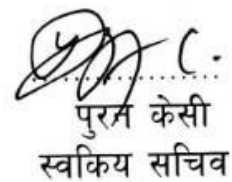 पुरन केसी
स्वकिय सचिव